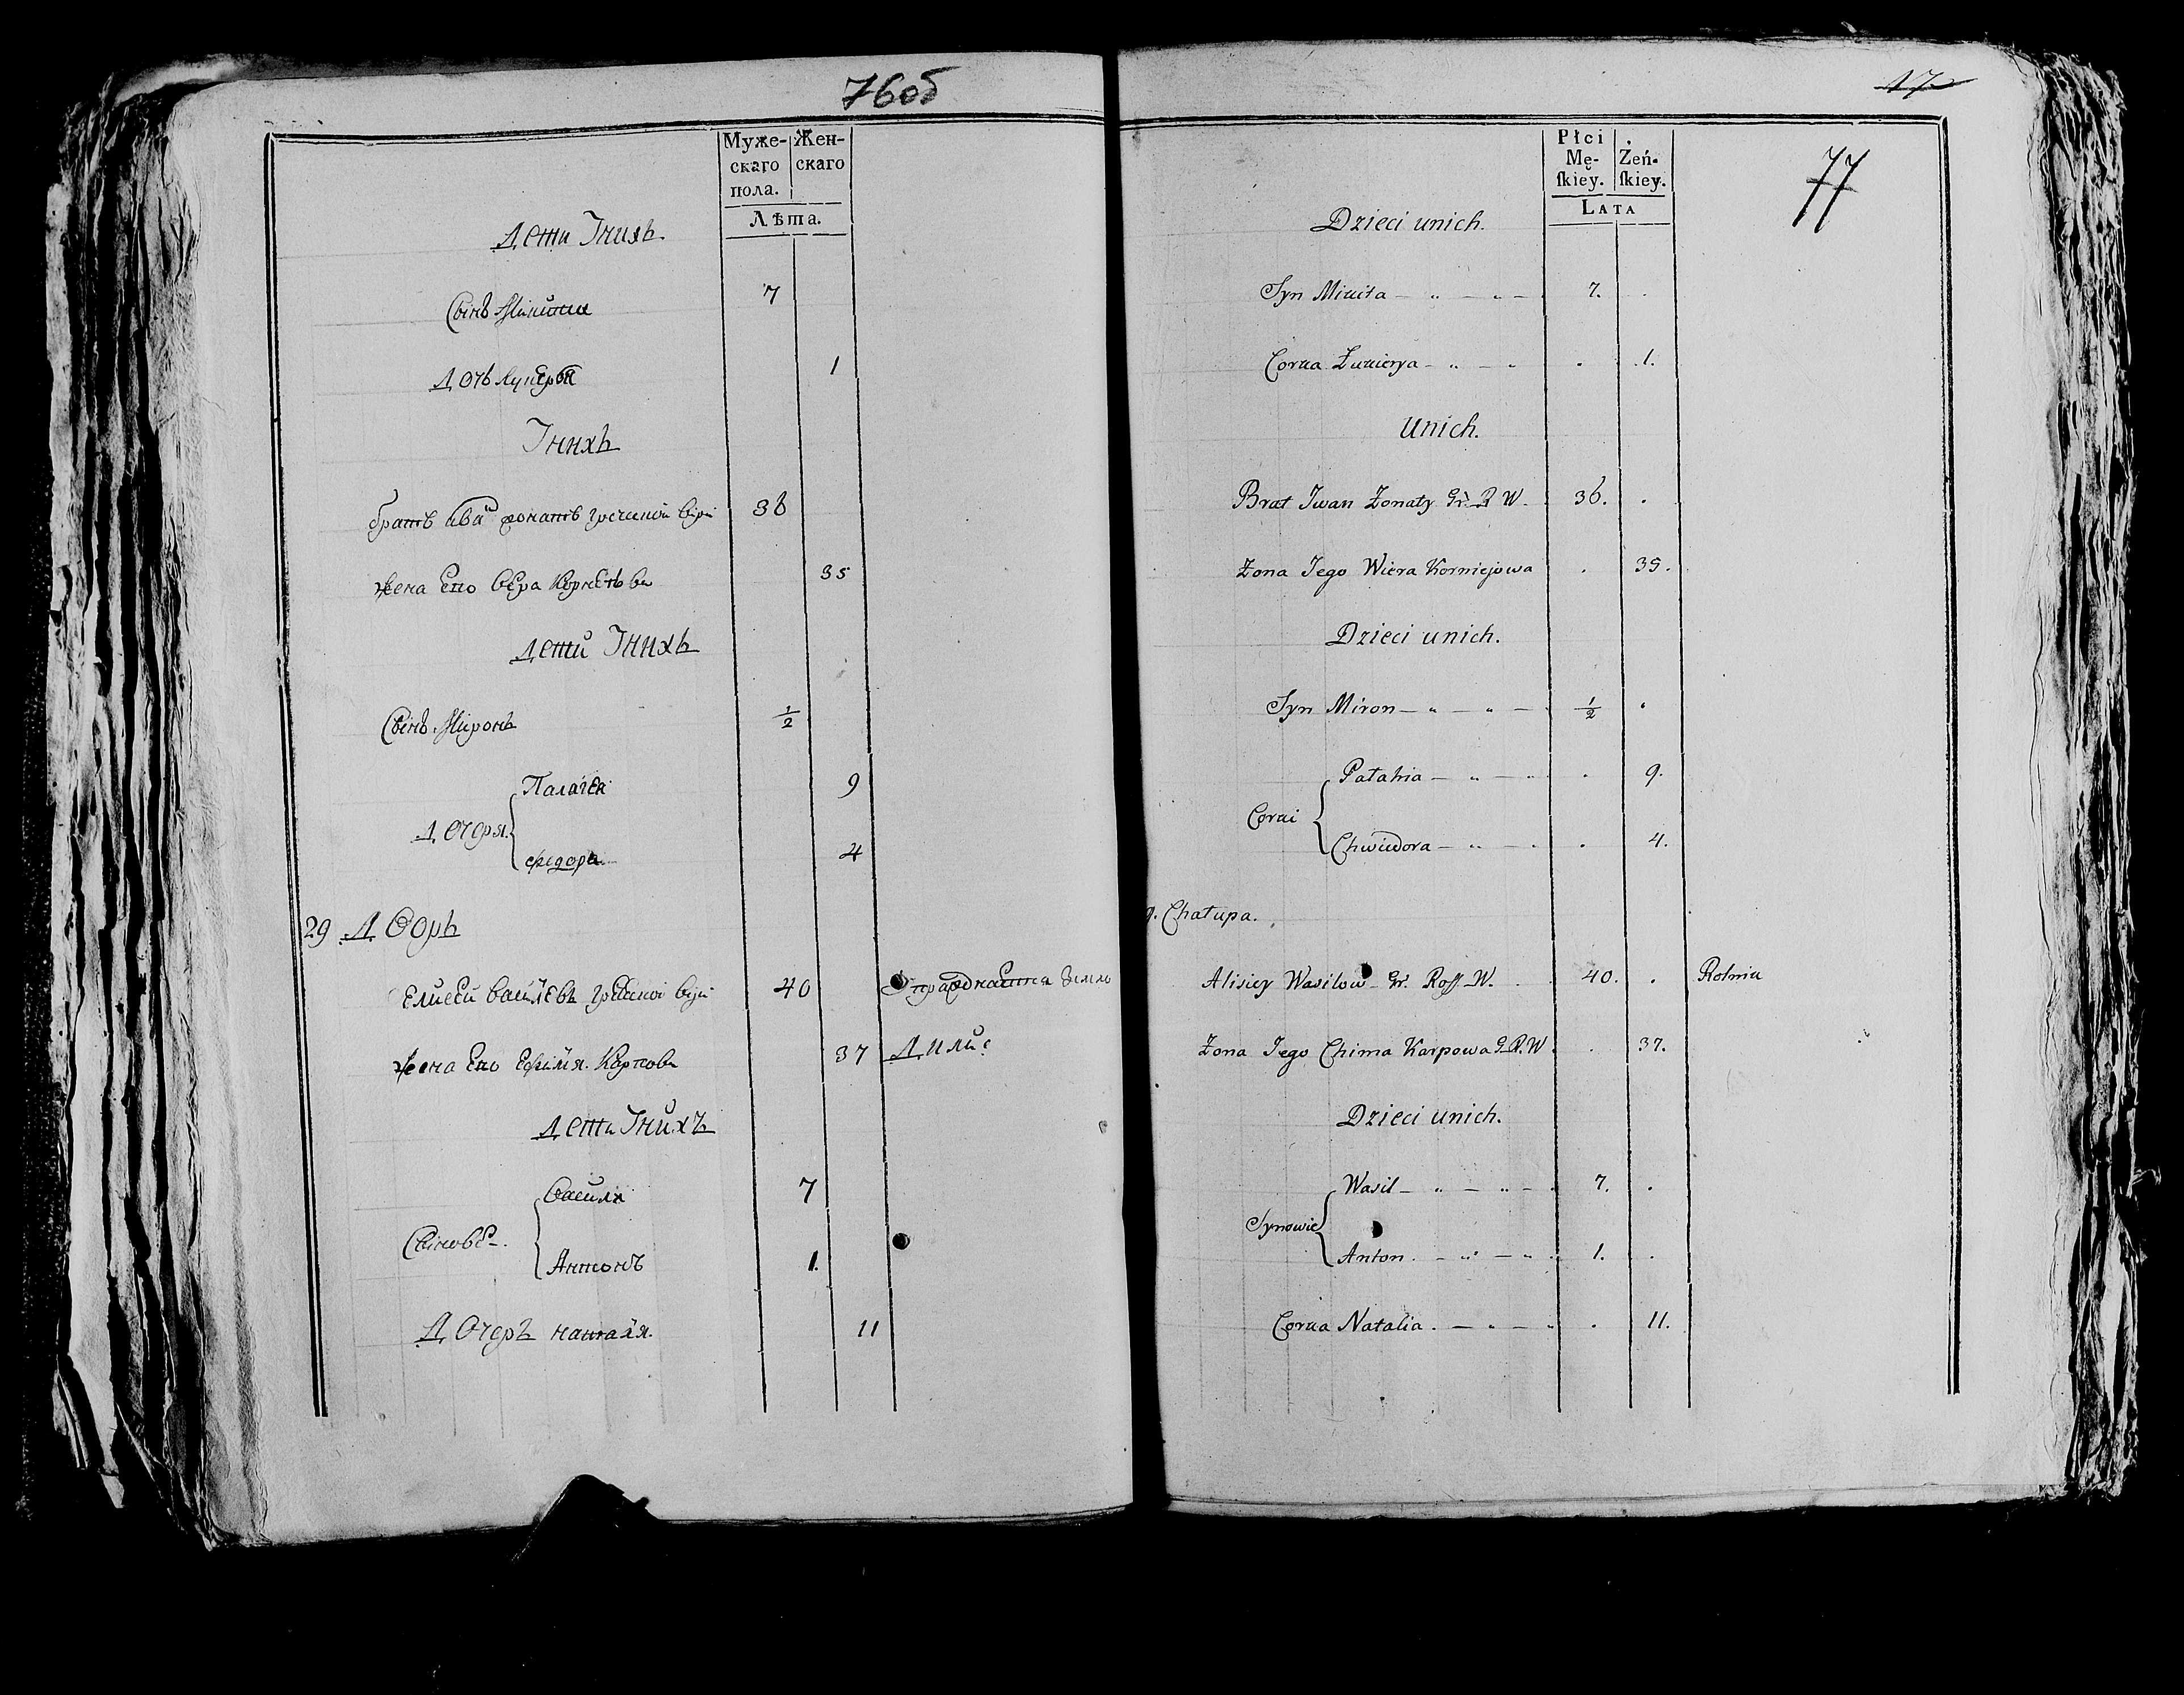 76об
Муже-
скаго
пола.
Жен-
скаго
Лѣта.
Дети Iнихъ
Сынъ Микита 7
Дочь Лукеря 1
Iнихъ
братъ Ива͏н жонатъ греческой вѣри 36
жена Его Вера Корнеева 35
Дети Iнихъ
Сынъ Миронъ 1/2
Палагея 9
Дочеря
Федора 4
29 Дворъ
Елисей Василевъ греческой вѣри 40 Упражнаетца Земле
жена Его Ефимия Карпова 37 Дилие
Дети Iнихъ
Василя 7
Сыновѣ
Антонъ 1.
Дочеръ наталия. 11
17
77
Płci
Mę-
skiey.
Żeń-
skiey.
LATA
Dzieci unich.
Syn Mikita 7.
Corka Łukierya 1.
Unich.
Brat Iwan Żonaty Gr. R W. 36.
Żona Iego Wiera Korniejowa 35.
Dzieci unich.
Syn Miron 1/2
Pałahia 9.
Corki
Chwiedora 4.
9. Chałupa.
Alisiey Wasilow Gr. Ross. W. 40. Rolnik
Żona Iego Chima Karpowa G.R.W. 37.
Dzieci unich.
Wasil 7.
Synowie
Anton. 1.
Corka Natalia. 11.